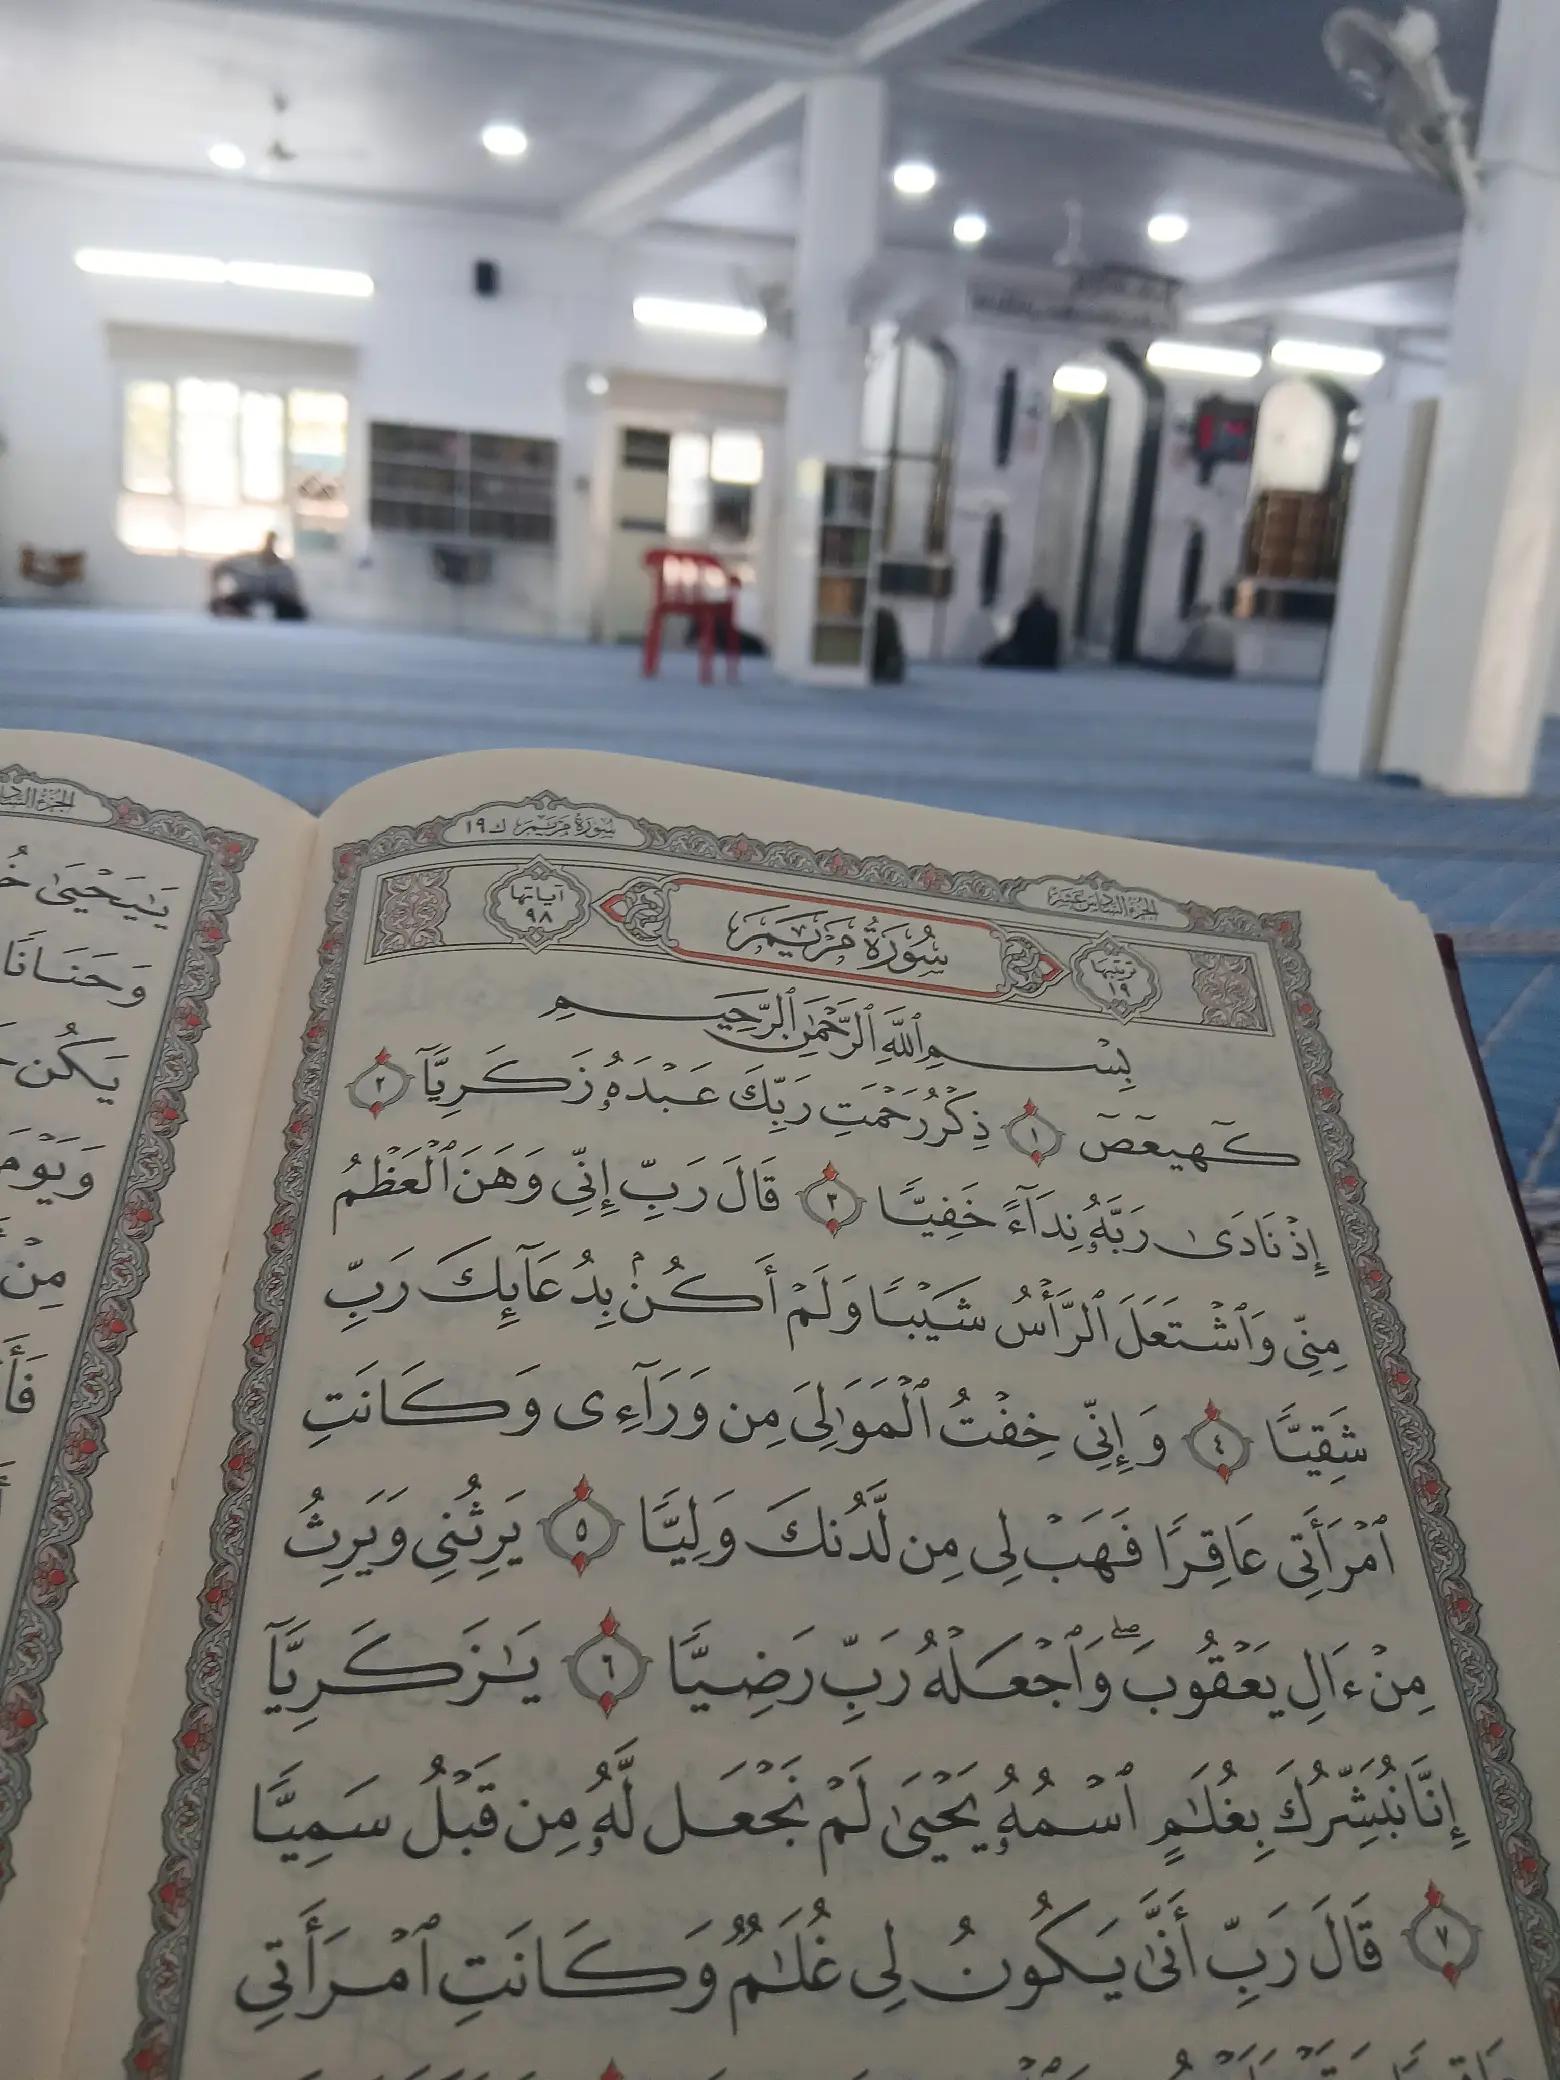 سُورَةُ مَرْيَمَ ك ١٩
الجزء السادس عشر
آياتها
٩٨
سُورَةُ مَرْيَمَ
ترتيبها
١٩
بِسْمِ ٱللَّهِ ٱلرَّحْمَٰنِ ٱلرَّحِيمِ
كٓهيعٓصٓ ١ ذِكْرُ رَحْمَتِ رَبِّكَ عَبْدَهُۥ زَكَرِيَّآ ٢
إِذْ نَادَىٰ رَبَّهُۥ نِدَآءً خَفِيًّا ٣ قَالَ رَبِّ إِنِّى وَهَنَ ٱلْعَظْمُ
مِنِّى وَٱشْتَعَلَ ٱلرَّأْسُ شَيْبًا وَلَمْ أَكُنۢ بِدُعَآئِكَ رَبِّ
شَقِيًّا ٤ وَإِنِّى خِفْتُ ٱلْمَوَٰلِىَ مِن وَرَآءِى وَكَانَتِ
ٱمْرَأَتِى عَاقِرًا فَهَبْ لِى مِن لَّدُنكَ وَلِيًّا ٥ يَرِثُنِى وَيَرِثُ
مِنْ ءَالِ يَعْقُوبَ ۖ وَٱجْعَلْهُ رَبِّ رَضِيًّا ٦ يَٰزَكَرِيَّآ
إِنَّا نُبَشِّرُكَ بِغُلَٰمٍ ٱسْمُهُۥ يَحْيَىٰ لَمْ نَجْعَل لَّهُۥ مِن قَبْلُ سَمِيًّا
٧ قَالَ رَبِّ أَنَّىٰ يَكُونُ لِى غُلَٰمٌ وَكَانَتِ ٱمْرَأَتِى
يَٰيَحْيَىٰ
وَحَنَانًا
يَكُن
مِنْ